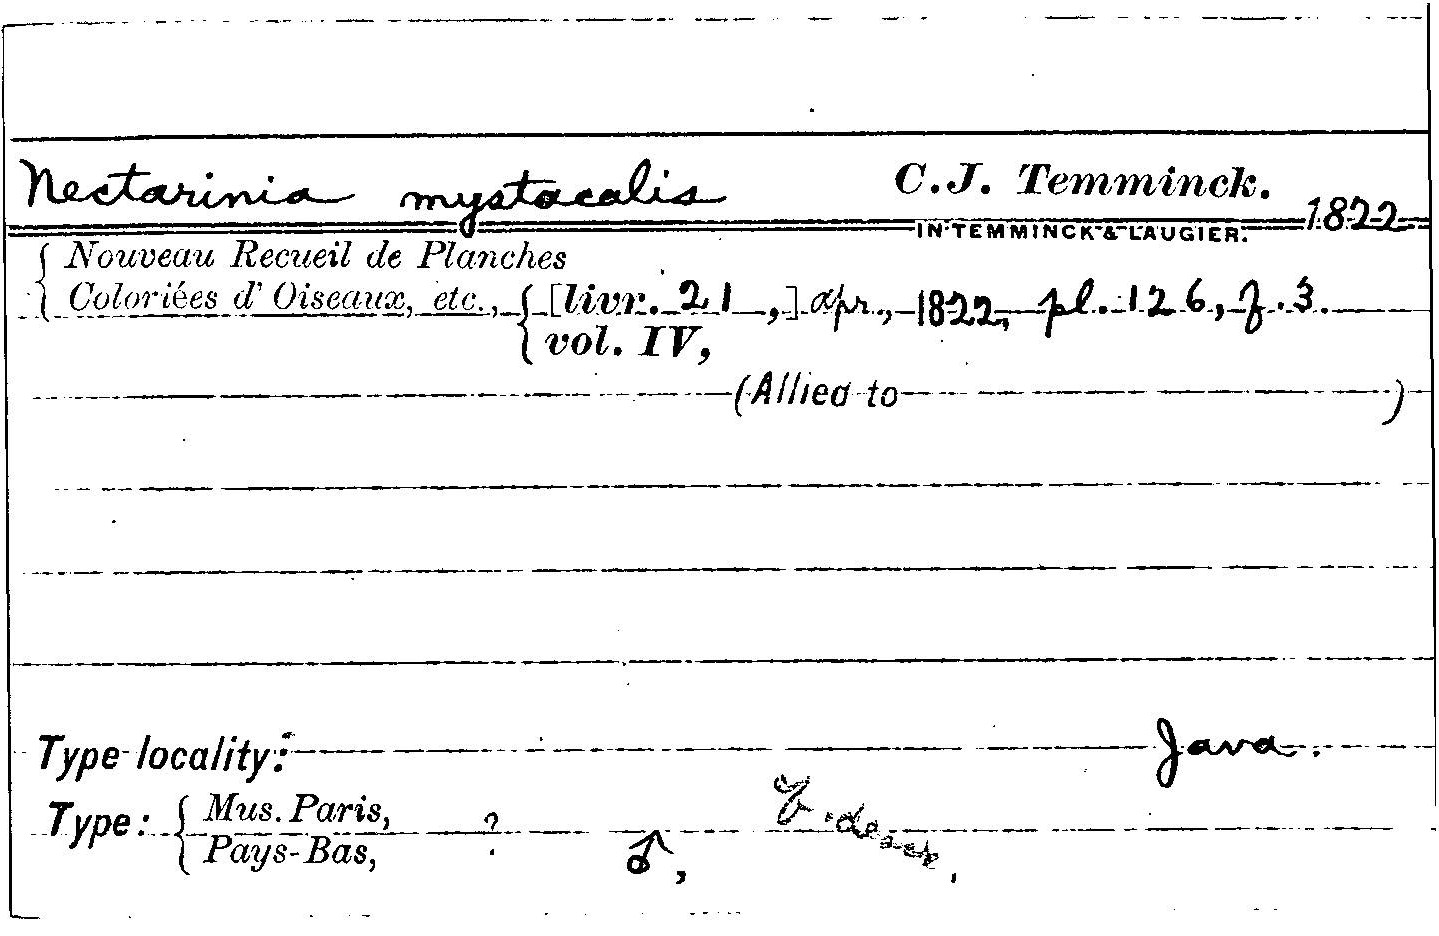 Nectarinia mystacalis C.J. Temminck.
IN TEMMINCK & LAUGIER. 1822
Nouveau Recueil de Planches
Coloriées d'Oiseaux, etc., [livr. 21,] apr., 1822, pl. 126, f. 3.
vol. IV,
(Allied to )
Type locality: Java.
Type: Mus. Paris,
Pays-Bas, ? ♂,